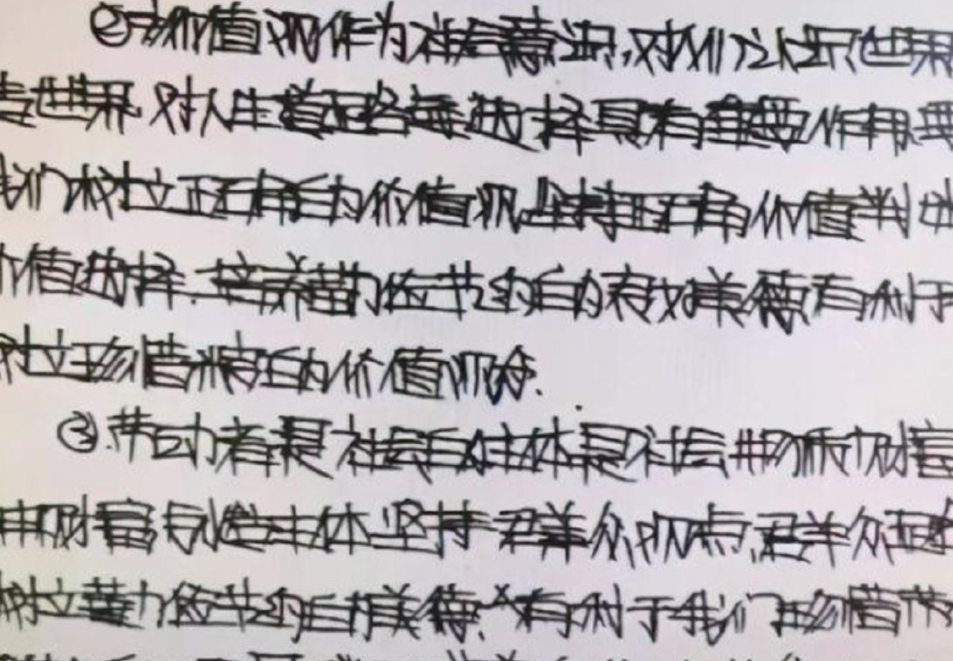 ②价值观作为社会意识,对人们认识世界
造世界,对人生道路的选择具有重要作用,要
我们树立正确的价值观,坚持正确价值判断
价值选择,培养勤俭节约的有效美德有利于
树立珍惜粮食的价值观念.
③劳动者是社会的主体是社会物质财富
神财富创造主体坚持群众观点,群众路
树立勤俭节约的美德,有利于我们珍惜劳